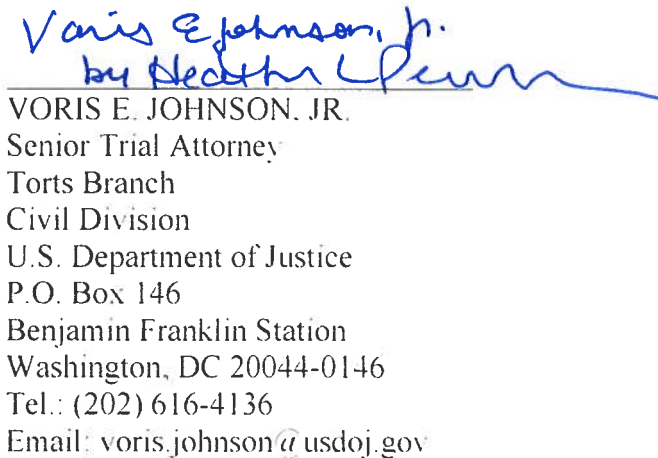 Voris E Johnson, Jr.
by Heather L
VORIS E. JOHNSON, JR.
Senior Trial Attorney
Torts Branch
Civil Division
U.S. Department of Justice
P.O. Box 146
Benjamin Franklin Station
Washington, DC 20044-0146
Tel.: (202) 616-4136
Email: voris.johnson@usdoj.gov